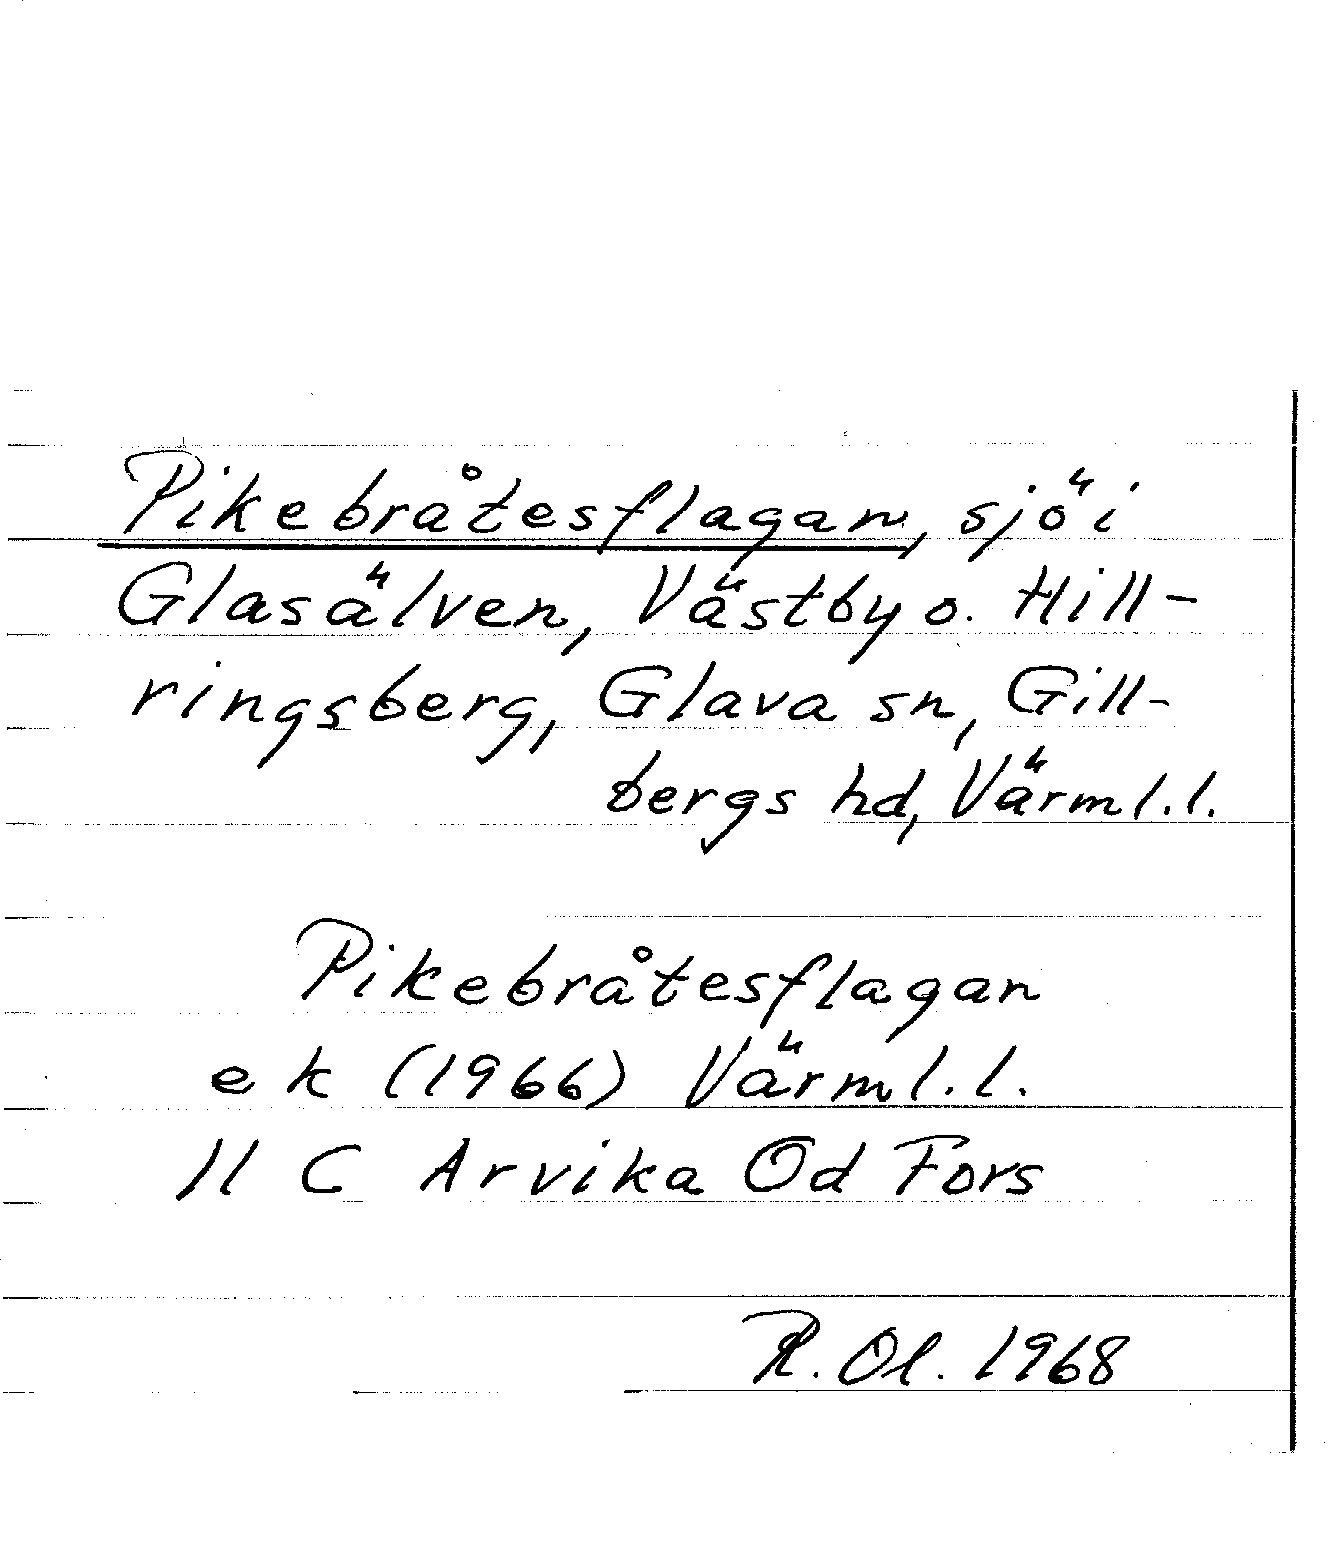 Pikebråtesflagan, sjö i
Glasälven, Västby o. Hill-
ringsberg, Glava sn, Gill-
bergs hd, Värml.l.
Pikebråtesflagan
e k (1966) Värml.l.
11 C Arvika Od Fors
R. Ol. 1968